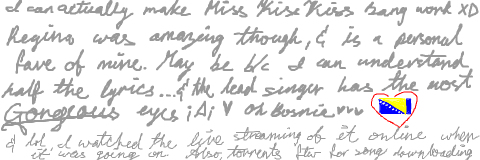 I can actually make Miss Kiss Kiss Bang work XD
Regina was amazing though, & is a personal
fave of mine. May be b/c I can understand
half the lyrics...& the lead singer has the most
Gorgeous eyes ;A; ♥ Oh Bosnia ♥♥♥
& lol, I watched the live streaming of it online when
it was going on Also, torrents ftw for song downloading